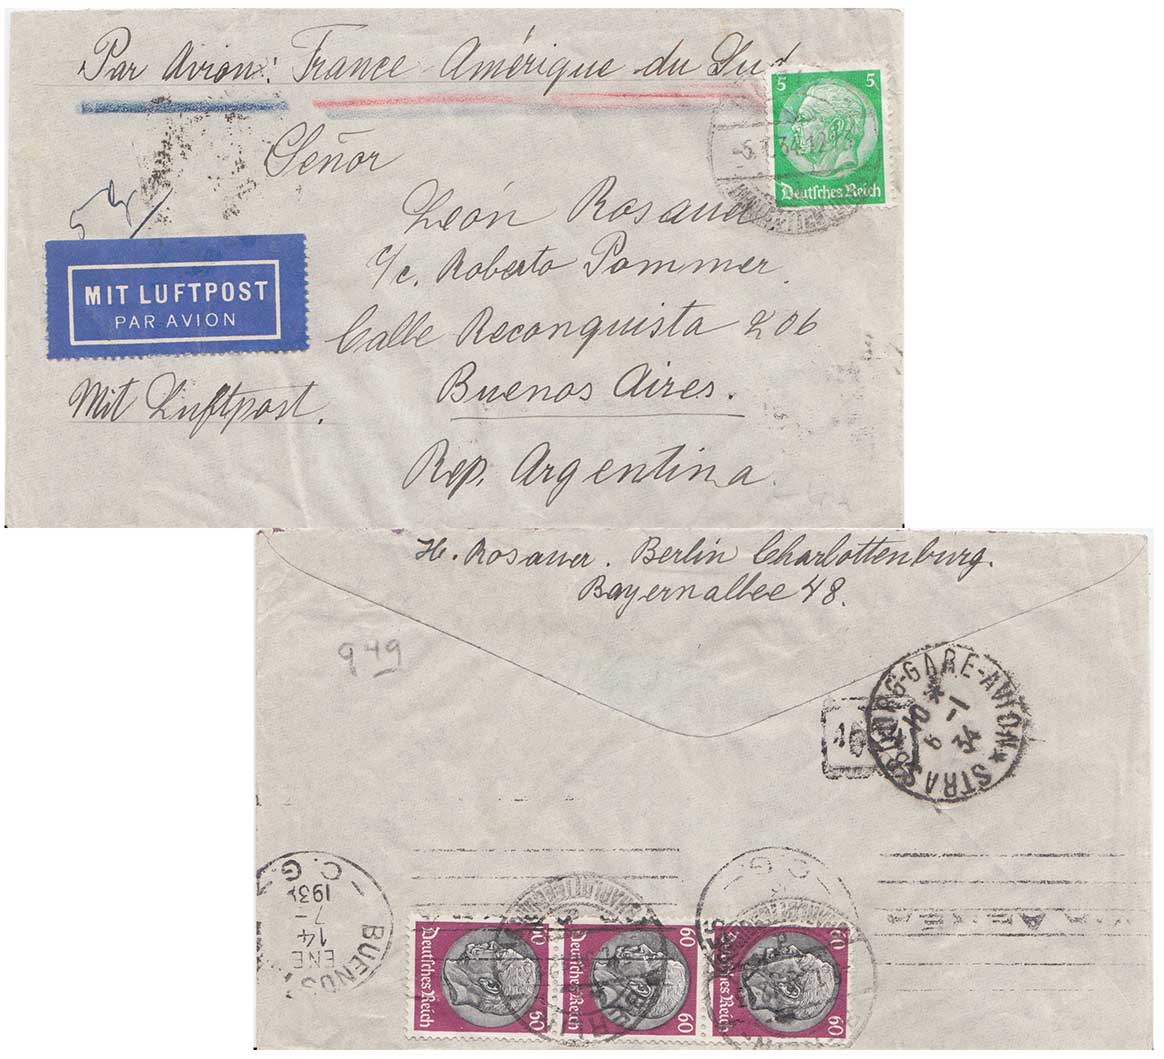 Par Avion: France-Amérique du Sud
5
5
Deutsches Reich
Señor
León Rosauer
c/c. Roberto Pommer
Calle Reconquista 206
Buenos Aires.
Rep. Argentina.
MIT LUFTPOST
PAR AVION
Mit Luftpost.
H. Rosauer. Berlin Charlottenburg.
Bayernallee 48.
949
STRASBOURG-GARE-AVION
10
6 -1
34
BUENOS
C. C.
ENE
14
7-
193
60
60
Deutsches Reich
60
60
Deutsches Reich
60
60